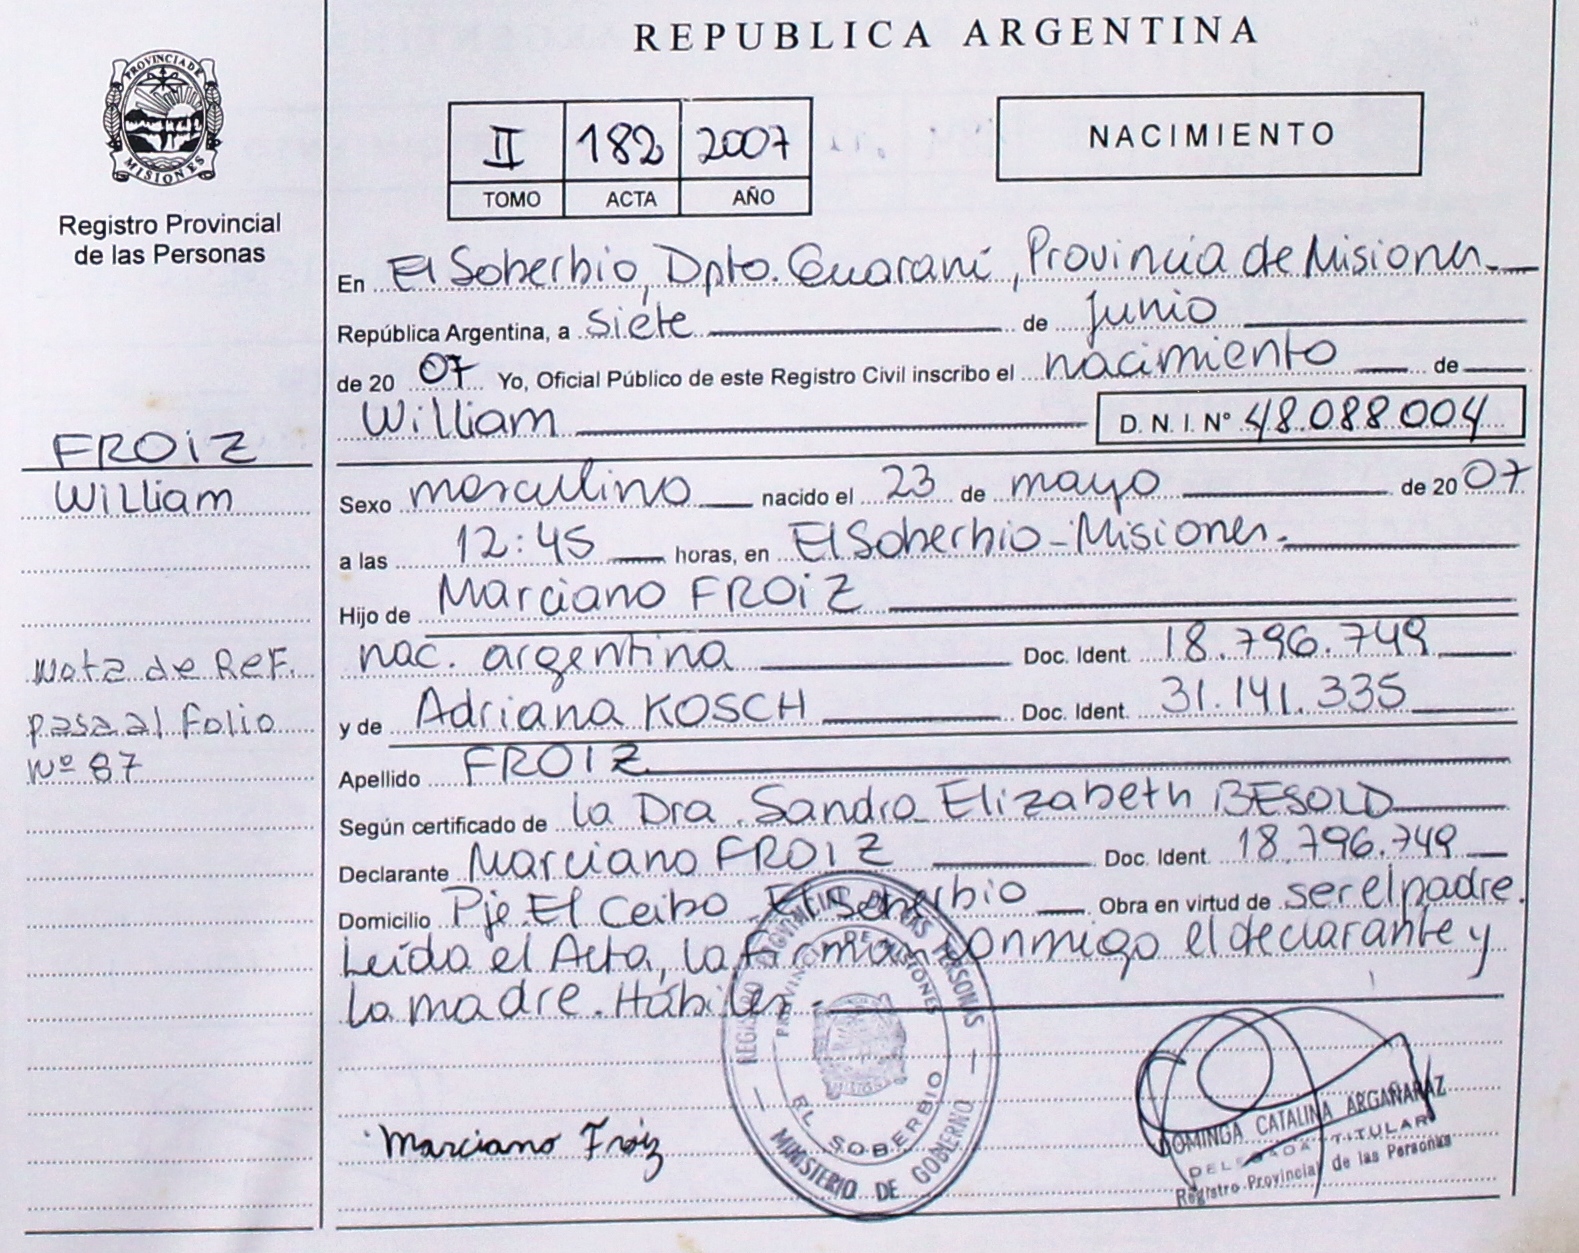 REPUBLICA ARGENTINA
PROVINCIA DE
MISIONES
Registro Provincial
de las Personas
II 182 2007
TOMO ACTA AÑO
NACIMIENTO
En El Soberbio, Dpto. Guaraní, Provincia de Misiones
República Argentina, a siete de junio
de 2007 Yo, Oficial Público de este Registro Civil inscribo el nacimiento de
William D. N. I. Nº 48.088.004
FROIZ
William
Sexo masculino nacido el 23 de mayo de 2007
a las 12:45 horas, en El Soberbio - Misiones.
Hijo de Marciano FROIZ
nac. argentina Doc. Ident. 18.796.749
y de Adriana KOSCH Doc. Ident. 31.141.335
Apellido FROIZ
Según certificado de la Dra. Sandra Elizabeth BESOLD
Declarante Marciano FROIZ Doc. Ident. 18.796.749
Domicilio Pje El Ceibo El Soberbio Obra en virtud de ser el padre.
Leída el Acta, la firman conmigo el declarante y
la madre. Hábiles.
Nota de Ref.
pasa al Folio
Nº 87
Marciano Froiz
REGISTRO PROVINCIAL DE LAS PERSONAS
PROVINCIA DE MISIONES
EL SOBERBIO
MINISTERIO DE GOBIERNO
DOMINGA CATALINA ARGAÑARAZ
DELEGADA TITULAR
Registro Provincial de las Personas